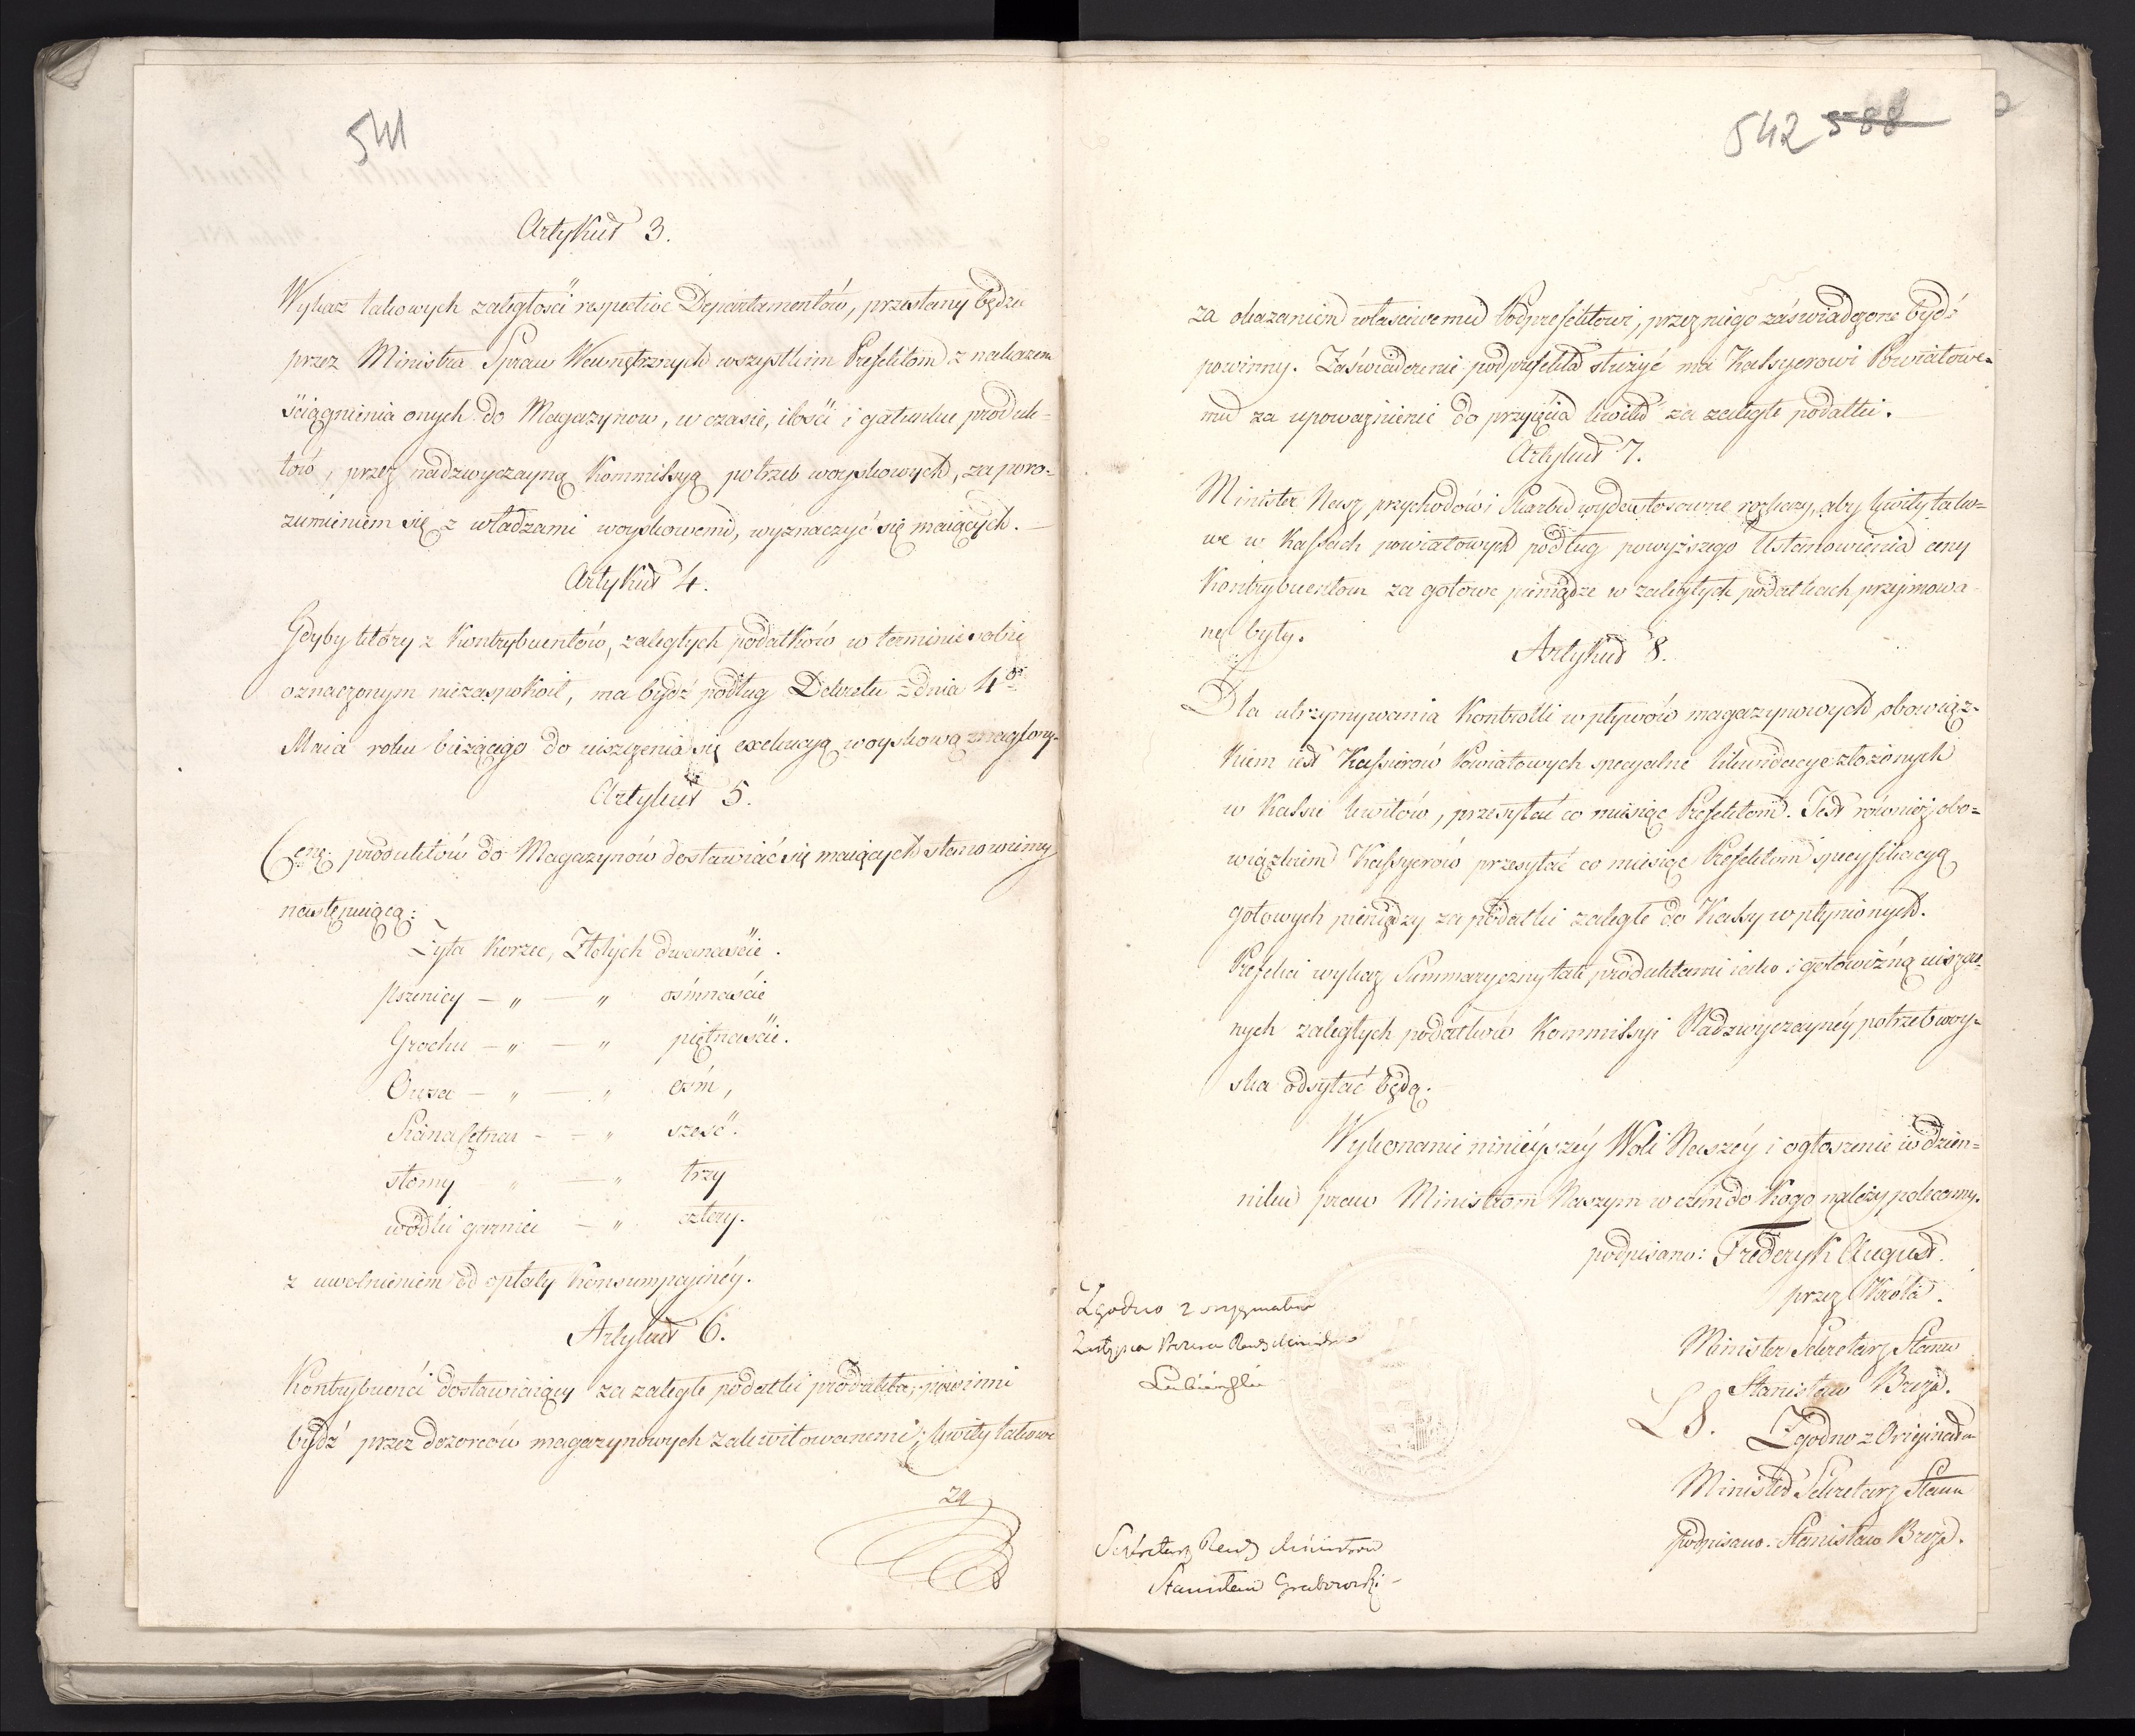 541
Artykuł 3.
Wykaz takowych zaległości respective Departamentów, przesłany będzie
przez Ministra Spraw Wewnętrznych wszystkim Prefektom z nakazem
ściągnienia onych do Magazynow, w czasie, ilości i gatunku produk-
tów, przez nadzwyczayną Kommissyą potrzeb woyskowych, za poro-
zumieniem się z władzami woyskowemi, wyznaczyć się maiących.
Artykuł 4.
Gdyby który z Kontrybuentów, zaległych podatków w terminie sobie
oznaczonym niezaspokoił, ma bydź podług Dekretu z dnia 4go
Maia roku bieżącego do uiszczenia się exekucyą woyskową znaglony.
Artykuł 5.
Cenę produktów do Magazynów dostawiać się maiących stanowimy
następuiącą:
Żyta Korzec, Złotych dwanaście.
Pszenicy — „ — „ ośmnaście
Grochu — „ — „ piętnaście.
Owsa — „ — „ ośm,
Siana Cetnar — — „ sześć.
słomy — „ — „ trzy
wódki garniec — „ cztery.
z uwolnieniem od opłaty Konsumpcyinéy.
Artykuł 6.
Kontrybuenci dostawiaiący za zaległe podatki produkta, powinni
bydź przez dozorców magazynowych zakwitowanemi; kwity takowe
za
542 588
za okazaniem właściwemu Podprefektowi, przez niego zaświadczone bydź
powinny. Zaświadczenie podprefekta służyć ma Kassyerowi Powiatowe-
mu za upoważnienie do przyięcia kwitu za zaległe podatki.
Artykuł 7.
Minister Nasz przychodów i Skarbu wyda stosowne rozkazy, aby kwity tako-
we w Kassach powiatowych podług powyższego Ustanowienia ceny
Kontrybuentom za gotowe pieniądze w zaległych podatkach przejmowa-
ne były.
Artykuł 8.
Dla utrzymywania Kontrolli wpływów magazynowych, obowiąz-
kiem iest Kassierów Powiatowych specyalne likwidacye złożonych
w Kassie kwitów, przesyłać co miesiąc Prefektom. Jest również obo-
wiązkiem Kassyerów przesyłać co miesiąc Prefektom specyfikacyą
gotowych pieniędzy za podatki zaległe do Kassy wpłynionych.
Prefekci wykaz Summaryczny tak produktami iako i gotowizną uiszczo-
nych zaległych podatków Kommissyi Nadzwyczaynéy potrzeb woy-
ska odsyłać będą.
Wykonanie ninieyszéy Woli Naszéy i ogłoszenie w dzien-
niku praw Ministrom Naszym w czem do Kogo należy polecamy.
podpisano: Frederyk August.
przez Króla.
Minister Sekretarz Stanu
Stanisław Breza.
L S. Zgodno z Oryginałem
Minister Sekretarz Stanu
podpisano: Stanisław Breza.
Zgodno z oryginałem
Zastępca Prezesa Rady Ministrów
Lubieński
Sekretarz Rady Ministrów
Stanisław Grabowski